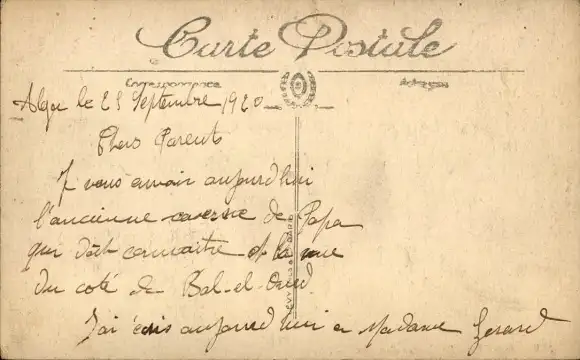 Carte Postale
Correspondance Adresse
Alger le 23 Septembre 1920
Chers Parents
J vous envoie aujourd'hui
l'ancienne caserne de Papa
qui doit connaitre et la vue
du coté de Bab-el-Oued
J'ai écris aujourd'hui a Madame Gerard
LEVY FILS & PARIS